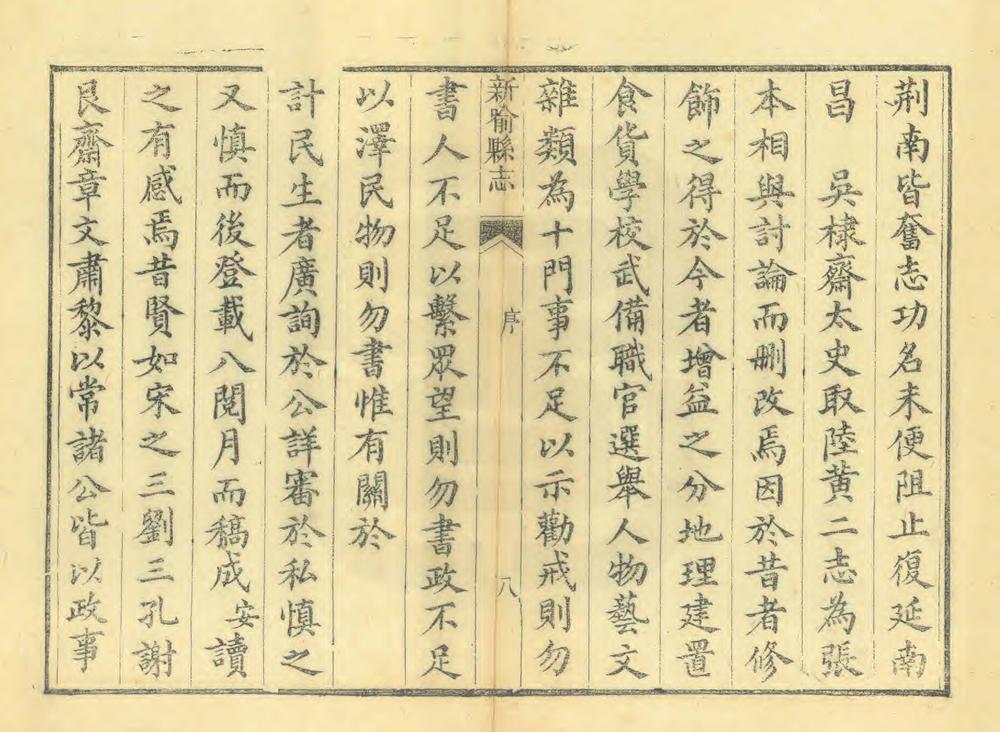 荆南皆奮志功名未便阻止復延南
昌　吳棣齋太史取陸黄二志為張
本相與討論而刪改焉因於昔者修
飾之得於今者增益之分地理建置
食貨學校武備職官選舉人物藝文
雜類為十門事不足以示勸戒則勿
新喻縣志
序
八
書人不足以繫眾望則勿書政不足
以澤民物則勿書惟有關於
計民生者廣詢於公詳審於私慎之
又慎而後登載八閱月而稿成安讀
之有感焉昔賢如宋之三劉三孔謝
艮齋章文肅黎以常諸公皆以政事